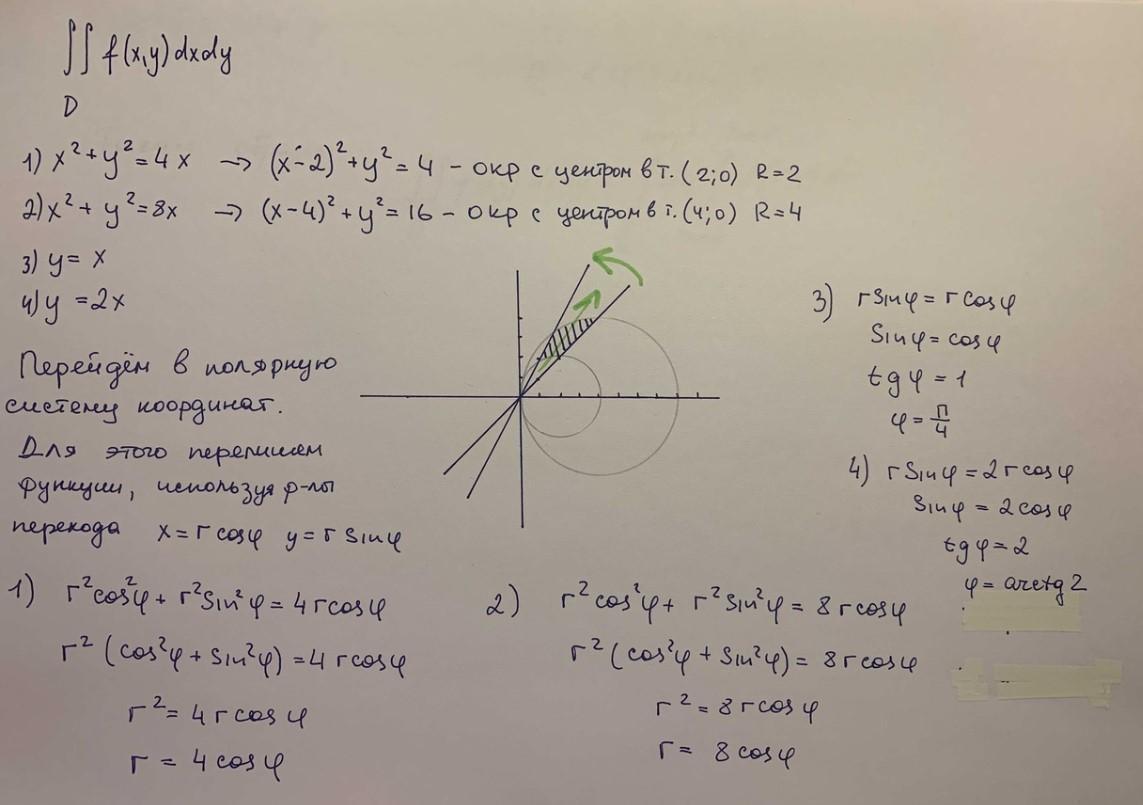 ∬ f(x,y)dxdy
D
1) x²+y²=4x → (x-2)²+y²=4 – окр с центром в т. (2;0) R=2
2) x²+y²=8x → (x-4)²+y²=16 – окр с центром в т. (4;0) R=4
3) y= x
4) y =2x
Перейдём в полярную
систему координат.
Для этого перепишем
функции, используя ф-лы
перехода x=r cosφ y=r sinφ
3) r sinφ = r cosφ
sinφ = cosφ
tgφ = 1
φ = π/4
4) r sinφ = 2r cosφ
sinφ = 2cosφ
tgφ = 2
φ = arctg 2
1) r²cos²φ + r²sin²φ = 4rcosφ
r² (cos²φ + sin²φ) = 4rcosφ
r² = 4rcosφ
r = 4cosφ
2) r²cos²φ + r²sin²φ = 8rcosφ
r² (cos²φ + sin²φ) = 8rcosφ
r² = 8rcosφ
r = 8cosφ